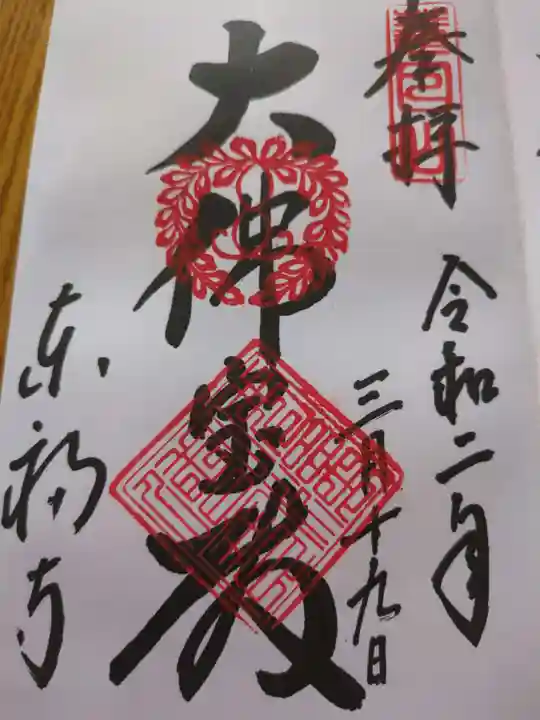 奉拝
令和二年
三月十九日
大佛宝殿
东福寺